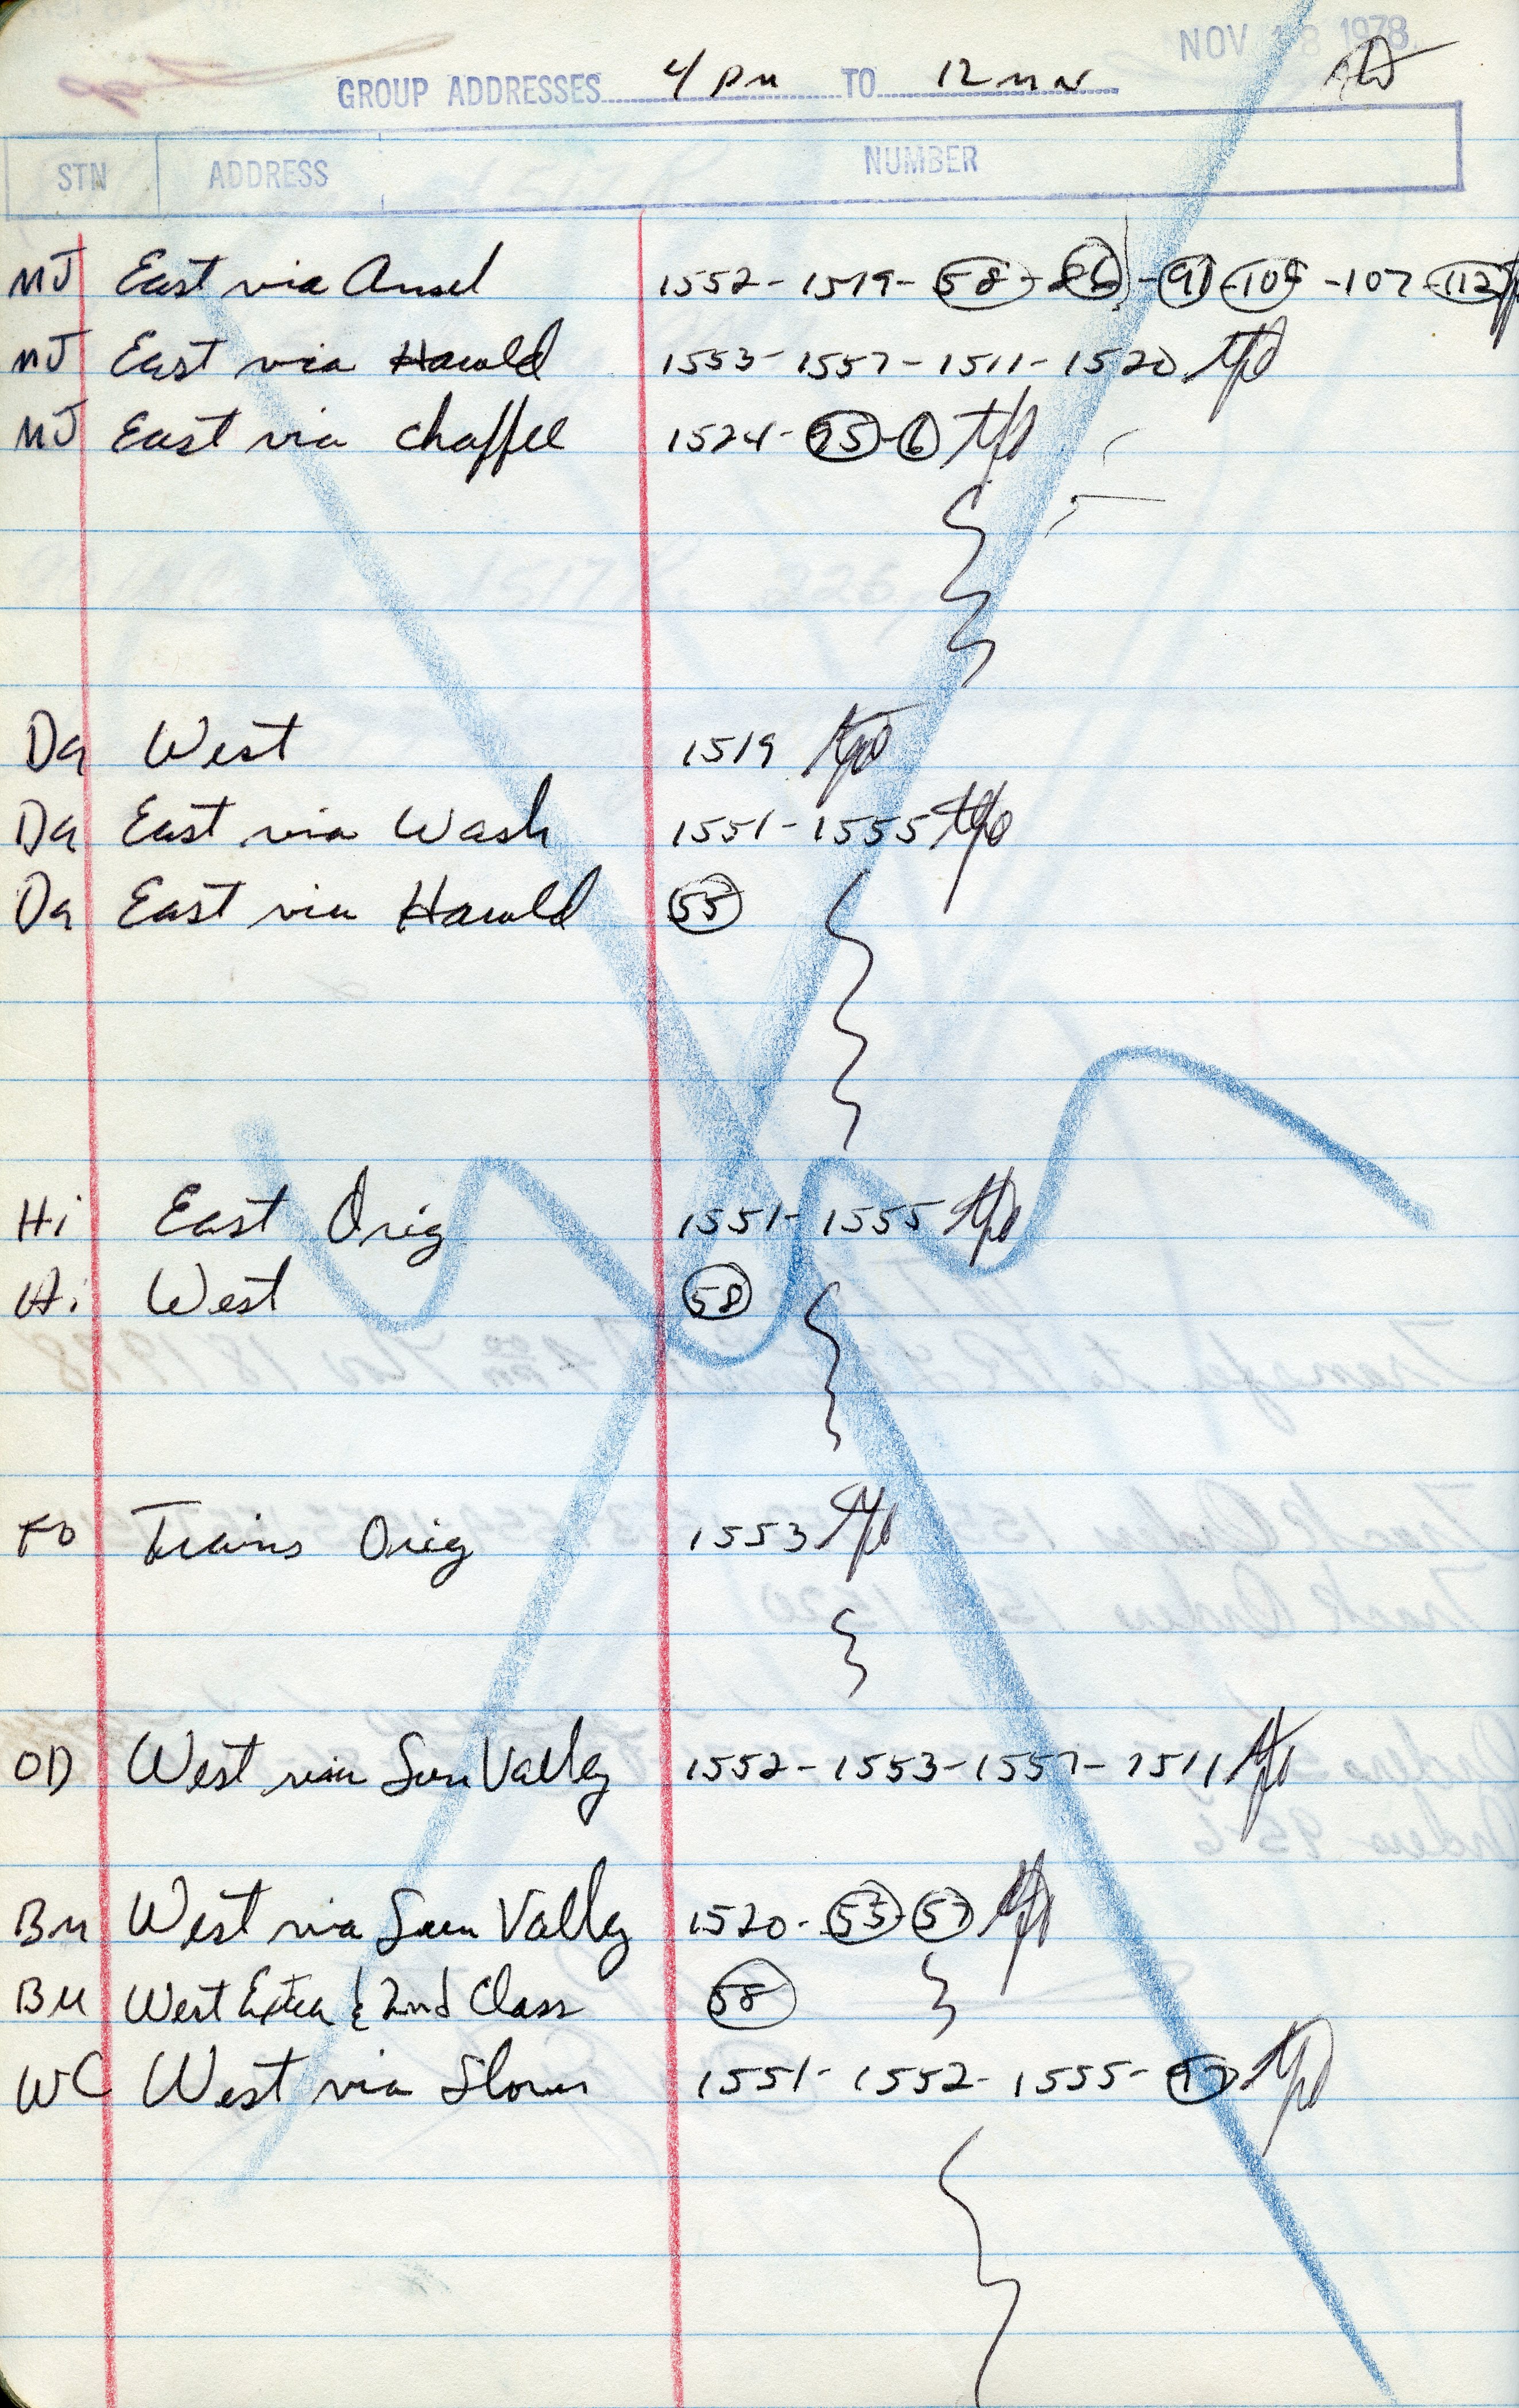 NOV 18 1978
GROUP ADDRESSES 4 PM TO 12 MN
STN ADDRESS NUMBER
MJ East via Ansel 1552-1519-58-86-91-109-107-112
MJ East via Harold 1553-1557-1511-1520
MJ East via Chaffee 1524-95-6
Da West 1519
Da East via Wash 1551-1555
Da East via Harold 55
Hi East Orig 1551-1555
Hi West 58
FO Trains Orig 1553
OD West via Sun Valley 1552-1553-1557-1511
BM West via Sun Valley 1520-53-57
BM West Extra & 2nd Class 58
WC West via 1551-1552-1555-